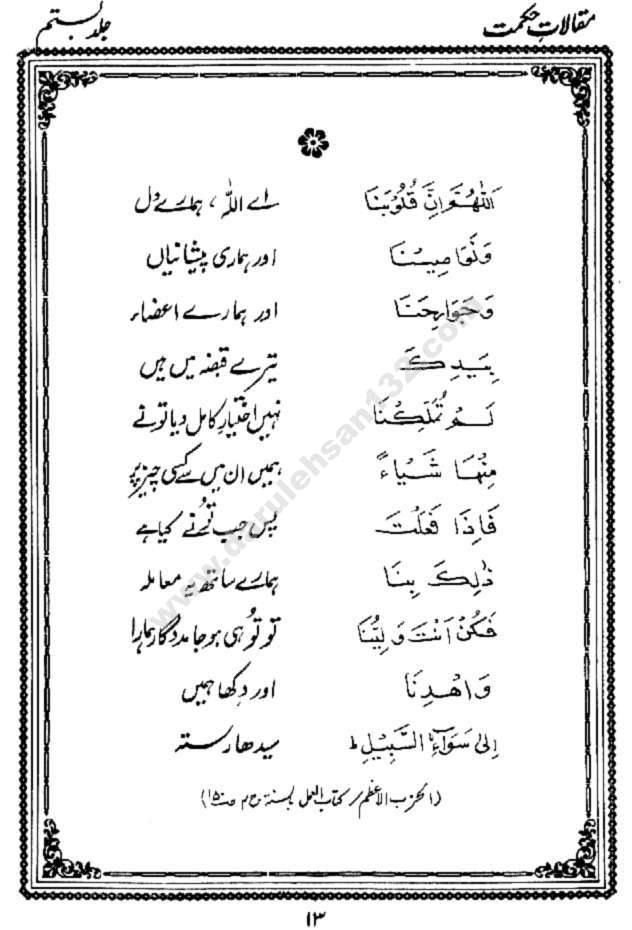 مقالاتِ حکمت جلد بستم
اَللّٰهُمَّ اِنَّ قُلُوْبَنَا اے اللہ، ہمارے دل
وَنَوَاصِيَنَا اور ہماری پیشانیاں
وَجَوَارِحَنَا اور ہمارے اعضاء
بِيَدِكَ تیرے قبضہ میں ہیں
لَمْ تُمَلِّكْنَا نہیں اختیارِ کامل دیا تو نے
مِنْهَا شَيْاءً ہمیں ان میں سے کسی چیز پر
فَاِذَا فَعَلْتَ پس جب تُو نے کیا ہے
ذٰلِكَ بِنَا ہمارے ساتھ یہ معاملہ
فَكُنْ اَنْتَ وَلِيَّنَا تو تُو ہی ہو جا مددگار ہمارا
وَاهْدِنَا اور دِکھا ہمیں
اِلىٰ سَوَآءِ السَّبِيْلِ ط سیدھا رستہ
(الحزب الاعظم / کتاب العمل بالسنۃ ج م ص ۱۵۰)
۱۳
www.darulehsan132.com